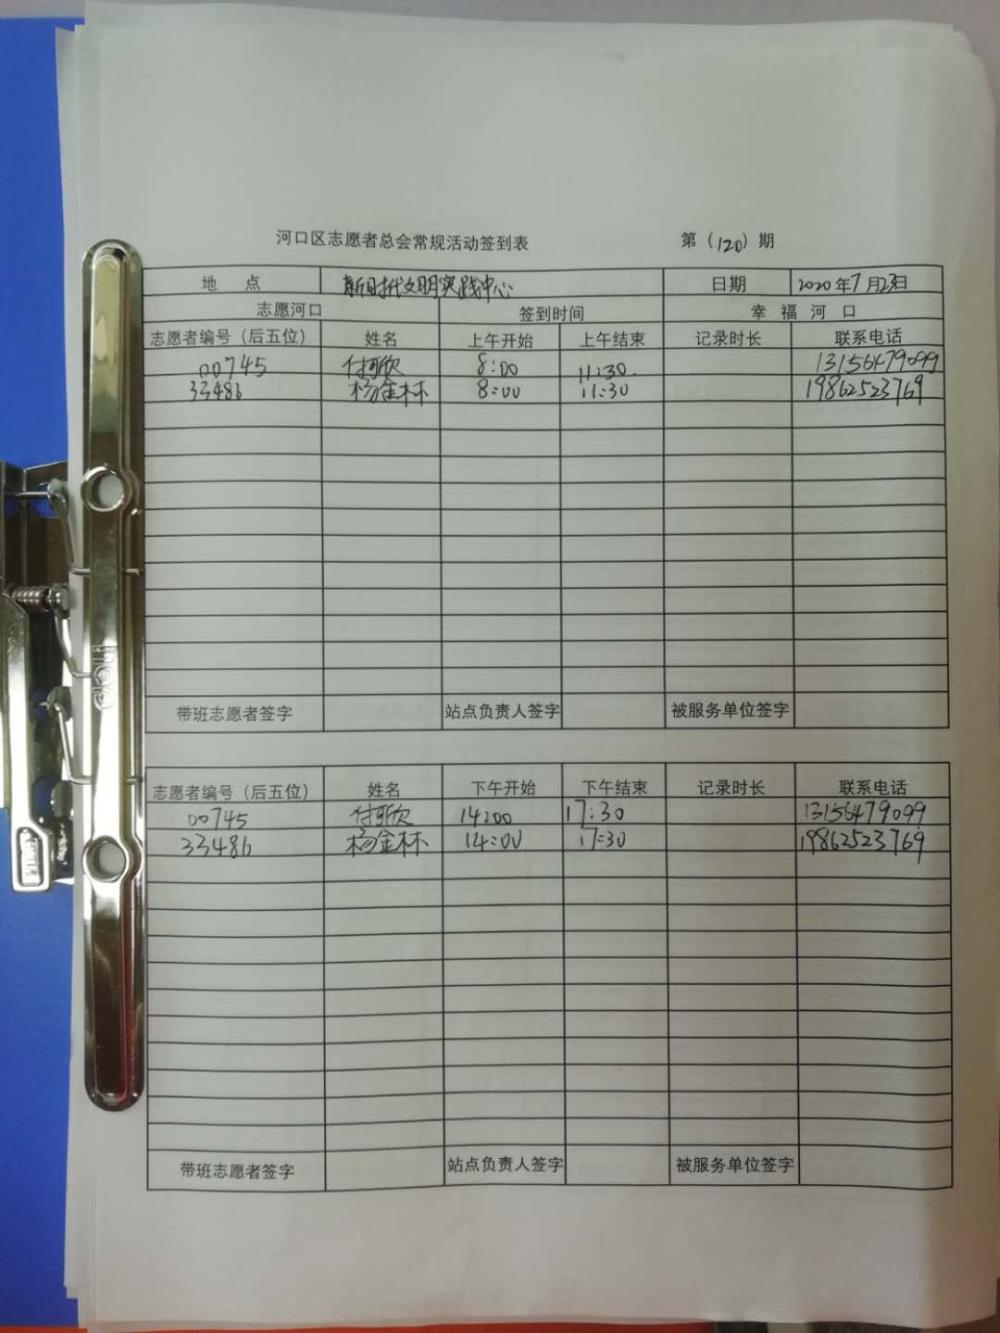 河口区志愿者总会常规活动签到表 第（120）期
地 点 新时代文明实践中心 日期 2020年7月23日
志愿河口 签到时间 幸 福 河 口
志愿者编号（后五位） 姓名 上午开始 上午结束 记录时长 联系电话
00745 付可欣 8:00 11:30. 13156479099
33486 杨金林 8:00 11:30 19862523769
带班志愿者签字 站点负责人签字 被服务单位签字
志愿者编号（后五位） 姓名 下午开始 下午结束 记录时长 联系电话
00745 付可欣 14:00 17:30 13156479099
33486 杨金林 14:00 17:30 19862523769
带班志愿者签字 站点负责人签字 被服务单位签字